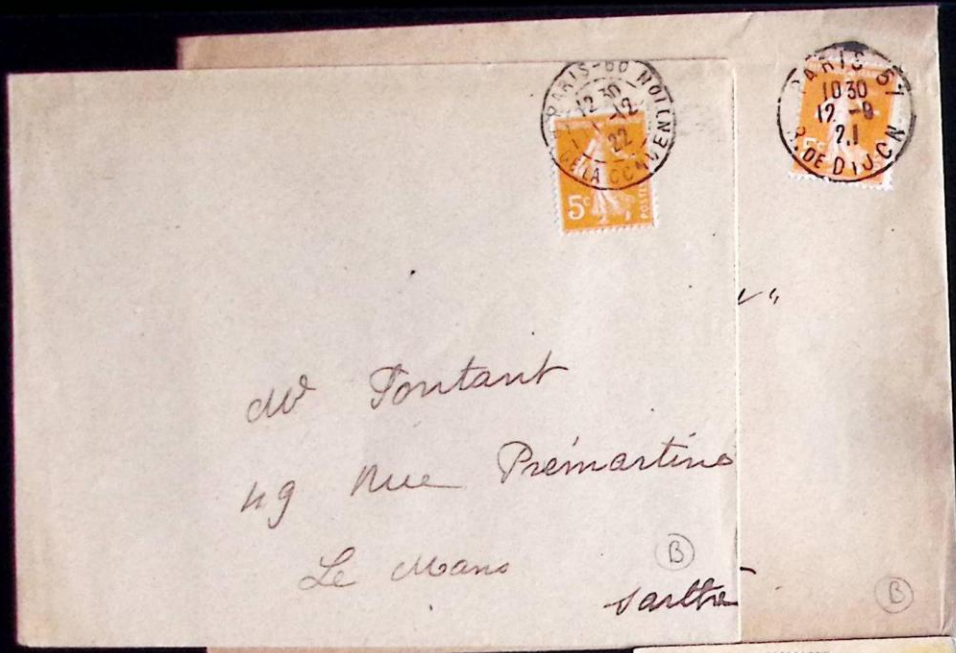 PARIS-60
12 30
1 -12
22
DE LA CONVENTION
5c
POSTES
PARIS 57
10 30
12 -9
21
R. DE DIJON
5c
Mr Fontant
49 Rue Prémartine
Le Mans
Sarthe
B
B